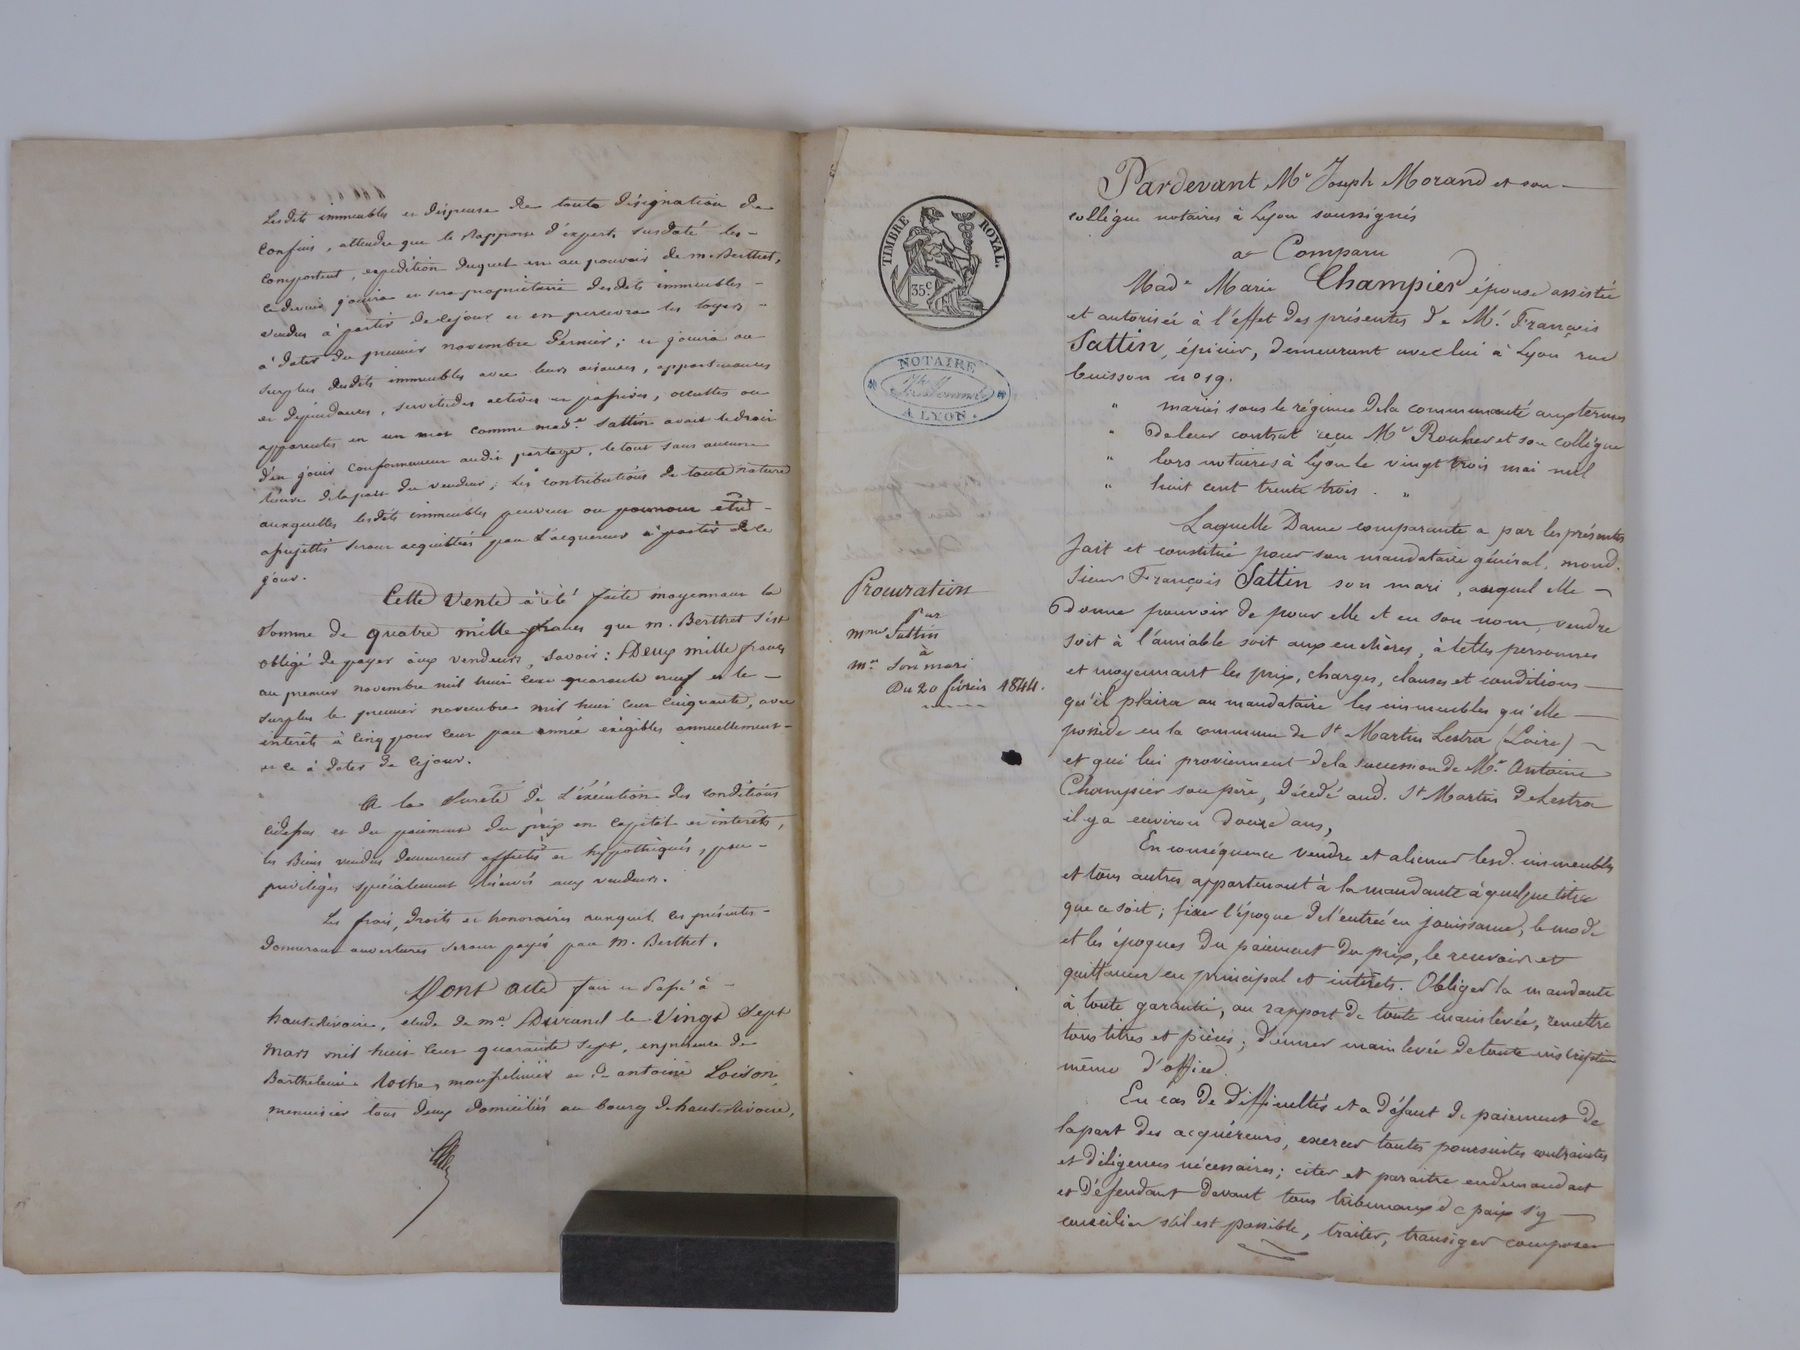 Lesdits immeubles et dispense de toute désignation de
confins, attendu que le Rapport d'experts susdaté les
comportent, expédition duquel est au pouvoir de m. Berthet,
ce dernier jouira et sera propriétaire desdits immeubles
vendus à partir de ce jour et en percevra les loyers
à dater du premier novembre dernier ; et jouira au
surplus desdits immeubles avec leurs aisances, appartenances
et dépendances, servitudes actives et passives, occultes ou
apparentes en un mot comme made. Sattin avait le droit
d'en jouir conformément audit partage, le tout sans aucune
réserve de la part du vendeur ; Les contributions de toute nature
auxquelles lesdits immeubles peuvent ou pourront être
assujettis seront acquittées par l'acquéreur à partir de ce
jour.
Cette Vente a été faite moyennant la
somme de quatre mille francs que m. Berthet s'est
obligé de payer aux vendeurs, savoir : Deux mille francs
au premier novembre mil huit cent quarante neuf et le
surplus le premier novembre mil huit cent cinquante, avec
intérêts à cinq pour cent par année exigibles annuellement
et ce à dater de ce jour.
A la sureté de l'éxécution des conditions
cidessus et du paiement du prix en capital et intérêts,
les Biens vendus demeurent affectés et hypothéqués, par
privilèges spécialement réservés aux vendeurs.
Les frais, droits et honoraires auxquels les présentes
donneront ouvertures seront payés par M. Berthet.
Dont acte fait et passé à
hauterivoire, étude de me. Durand le Vingt Sept
Mars mil huit cent quarante sept, en présence de
Barthelemi Roche, et d antoine Loison,
menuisier tous deux domiciliés au bourg de hauterivoire,
TIMBRE ROYAL.
35 c
NOTAIRE
A LYON.
Procuration
Par
mme Sattin
à
Mr. Son mari
Du 20 février 1844.
Pardevant Me Joseph Morand et son
collègue notaires à Lyon soussignés
a Comparu
Made Marie Champier épouse assistée
et autorisée à l'effet des présentes de Mr. François
Sattin, épicier, demeurant avec lui à Lyon rue
Buisson no 19.
" mariés sous le régime de la communauté aux termes
" de leur contrat reçu Me Rouher et son collègue
" lors notaires à Lyon le vingt trois mai mil
" huit cent trente trois. "
Laquelle Dame comparante a par les présentes
fait et constitué pour son mandataire général, mond.
Sieur François Sattin son mari, auquel elle
donne pouvoir de pour elle et en son nom, vendre
soit à l'amiable soit aux enchères, à telles personnes
et moyennant les prix, charges, clauses et conditions
qu'il plaira au mandataire les immeubles qu'elle
possède en la commune de St Martin Lestra (Loire)
et qui lui proviennent de la succession de Mr. Antoine
Champier son père, décédé aud. St Martin de Lestra
il y a environ douze ans,
En conséquence vendre et aliéner lesd. immeubles
et tous autres appartenant à la mandante à quelque titre
que ce soit ; fixer l'époque de l'entrée en jouissance, le mode
et les époques du paiement du prix, le recevoir et
quittancer en principal et intérêts. Obliger la mandante
à toute garantie, au rapport de toute mainlevée, remettre
tous titres et pièces ; donner main levée de toute inscription
même d'office.
En cas de difficultés et a défaut de paiement de
la part des acquéreurs, exercer toutes poursuites contraintes
et diligences nécessaires ; citer et paraitre en demandant
et défendant devant tous tribunaux de paix s'y
concilier s'il est possible, traiter, transiger composer